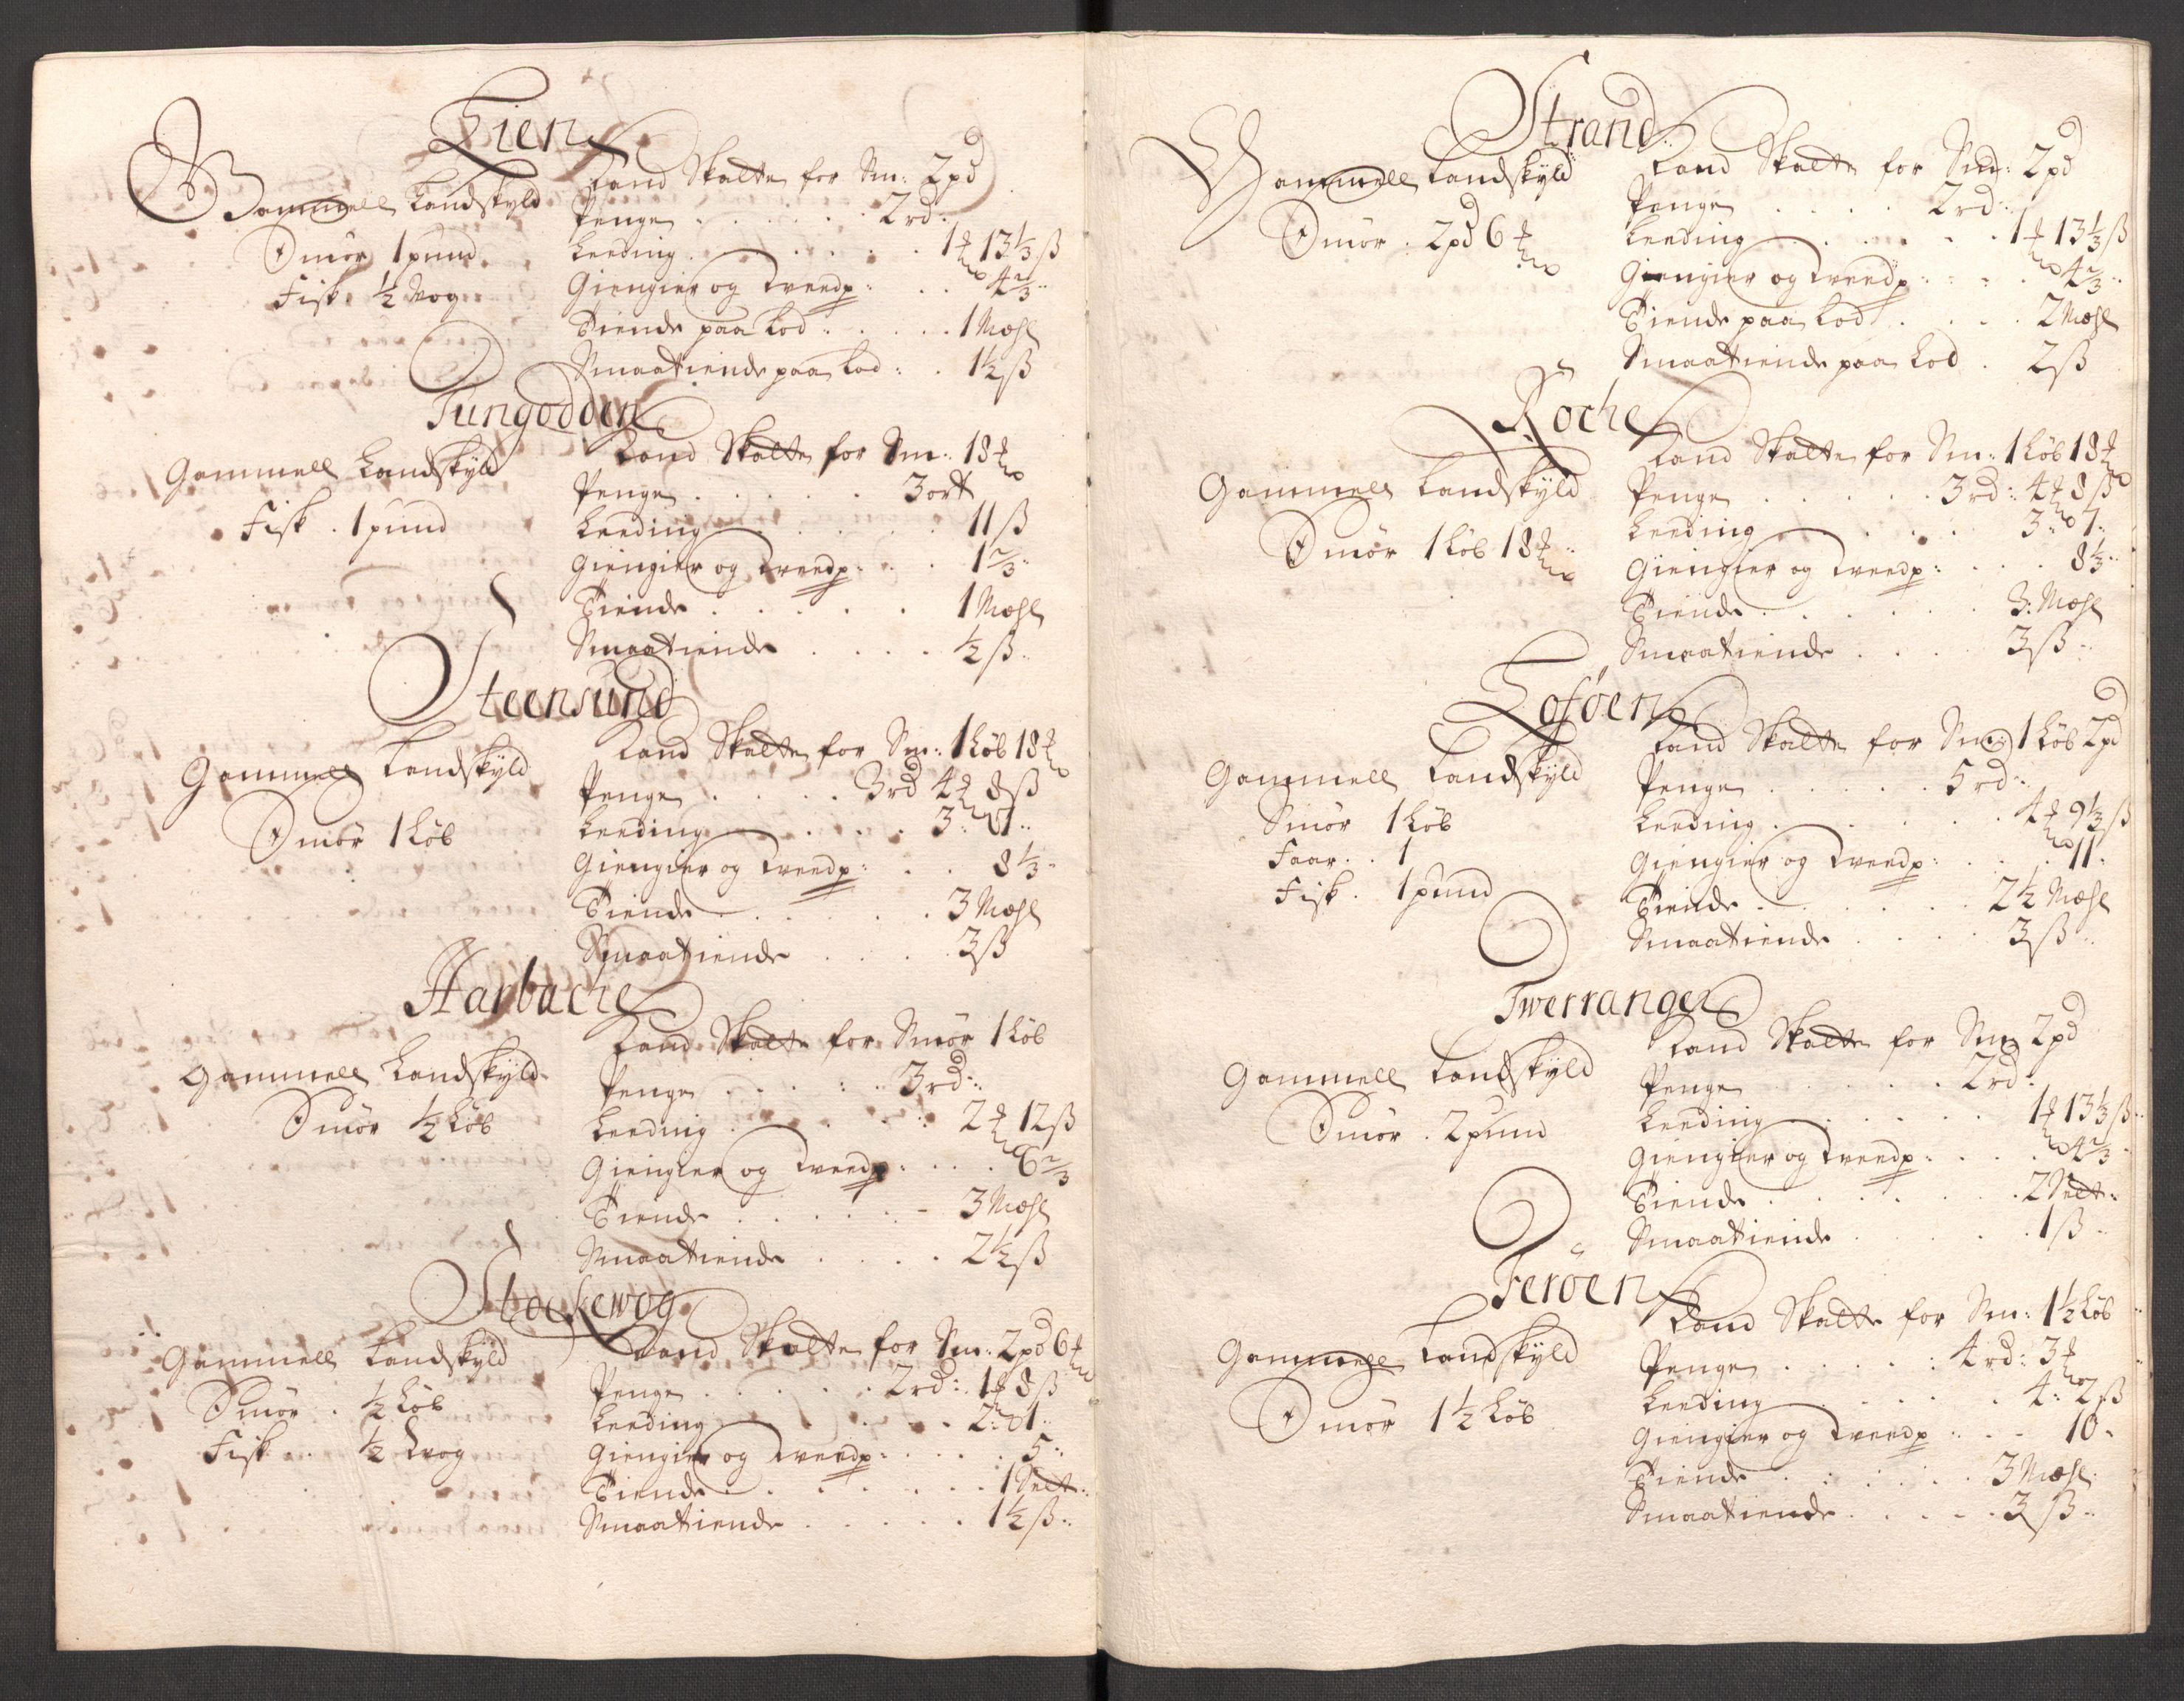 Lien
Gammell Landskyld
Smør 1 pund
Fisk ½ Wog
Land Skatte for Sm: 2 pd
Penge . . . . 2 rd:
Leeding . . . . 1 ₰ 13⅓ ß
Giengier og Treedp: . . 4⅔
Tiende paa Lod: . . . 1 Mæhl
Smaatiende paa Lod: . 1½ ß
Tungodden
Gammell Landskyld
Fisk . 1 pund
Land Skatte for Sm: 18 ₰
Penge . . . . . 3 ort
Leeding . . . . 11 ß
Giengier og Treedp: . . 1⅔
Tiende . . . . . 1 Mæhl
Smaatiende . . . . ½ ß
Steensund
Gammell Landskyld
Smør 1 Løb
Land Skatte for Sm: 1 Løb 18 ₰
Penge . . . . 3 rd 4 ₰ 8 ß
Leeding . . . . 3: 7:
Giengier og Treedp: . . 8⅓
Tiende . . . . . 3 Mæhl
Smaatiende . . . . 3 ß
Harbache
Gammell Landskyld
Smør ½ Løb
Land Skatte for Smør 1 Løb
Penge . . . . . 3 rd:
Leeding . . . . 2 ₰ 12 ß
Giengier og Treedp: . . . 6⅔
Tiende . . . . . 3 Mæhl
Smaatiende . . . . 2½ ß
Stockewog
Gammell Landskyld
Smør . ½ Løb
Fisk . . ½ Wog
Land Skatte for Sm: 2 pd 6 ₰
Penge . . . . . 2 rd: 1 ₰ 8 ß
Leeding . . . . 2: 1:
Giengier og Treedp: . . . . 5:
Tiende . . . . . . 1 Sælt:
Smaatiende . . . . . 1½ ß
Strand
Gammell Landskyld
Smør . 2 pd 6 ₰
Land Skatte for Sm: 2 pd
Penge . . . . 2 rd:
Leeding . . . . 1 ₰ 13⅓ ß
Giengier og Treedp: . . . 4⅔
Tiende paa Lod . . . . 2 Mæhl
Smaatiende paa Lod . 2 ß
Roche
Gammell Landskyld
Smør 1 Løb 18 ₰
Land Skatte for Sm: 1 Løb 18 ₰
Penge . . . . . 3 rd: 4 ₰ 8 ß
Leeding . . . . 3: 7:
Giengier og Treedp: . . . 8⅓
Tiende . . . . . 3: Mæhl
Smaatiende . . . . 3 ß
Losøen
Gammell Landskyld
Smør 1 Løb
Faar . . 1
Fisk . 1 pund
Land Skatte for Sm: 1 Løb 2 pd
Penge . . . . . 5 rd:
Leeding . . . . . 4 ₰ 9⅓ ß
Giengier og Treedp: . . . 11:
Tiende . . . . . 2½ Mæhl
Smaatiende . . . . 3 ß
Twerranger
Gammell Landskyld
Smør . 2 pund
Land Skatte for Sm 2 pd
Penge . . . . . 2 rd:
Leeding . . . . . 1 ₰ 13⅓ ß
Giengier og Treedp: . . . 4⅔
Tiende . . . . . . 2 Sælt:
Smaatiende . . . . . 1 ß
Ferøen
Gammell Landskyld
Smør 1½ Løb
Land Skatte for Sm: 1½ Løb
Penge . . . . : 4 rd: 3 ₰
Leeding . . . . . 4: 2 ß
Giengier og Treedp: . . . 10
Tiende . . . . . 3 Mæhl
Smaatiende . . . . . 3 ß